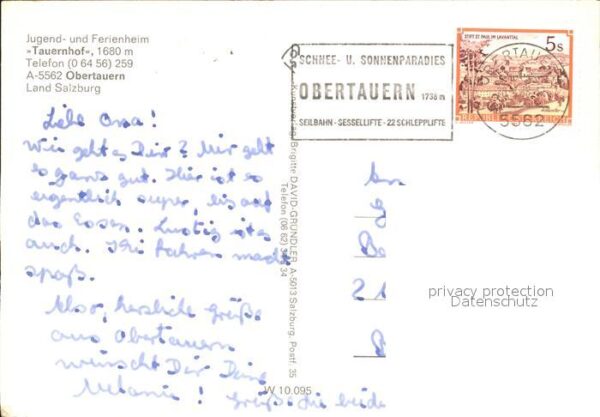 Jugend- und Ferienheim
»Tauernhof«, 1680 m
Telefon (0 64 56) 259
A-5562 Obertauern
Land Salzburg
SCHNEE- U. SONNENPARADIES
OBERTAUERN 1738 m
SEILBAHN - SESSELLIFTE - 22 SCHLEPPLIFTE
STIFT ST. PAUL IM LAVANTTAL
5s
5562
Liebe Oma!
Wie geht es Dir? Mir geht
es ganz gut. Hier ist es
eigentlich super, bis auf
das Essen. Lustig ist es
auch. Ski fahren macht
spaß.
Also, herzliche Grüße
aus Obertauern
wünscht Dir Deine
Melanie! Grüße die beiden
Brigitte DAVID-GRÜNDLER, A-5013 Salzburg, Postf. 35
Telefon (06 62) 34
W 10.095
An
B
21
privacy protection
Datenschutz